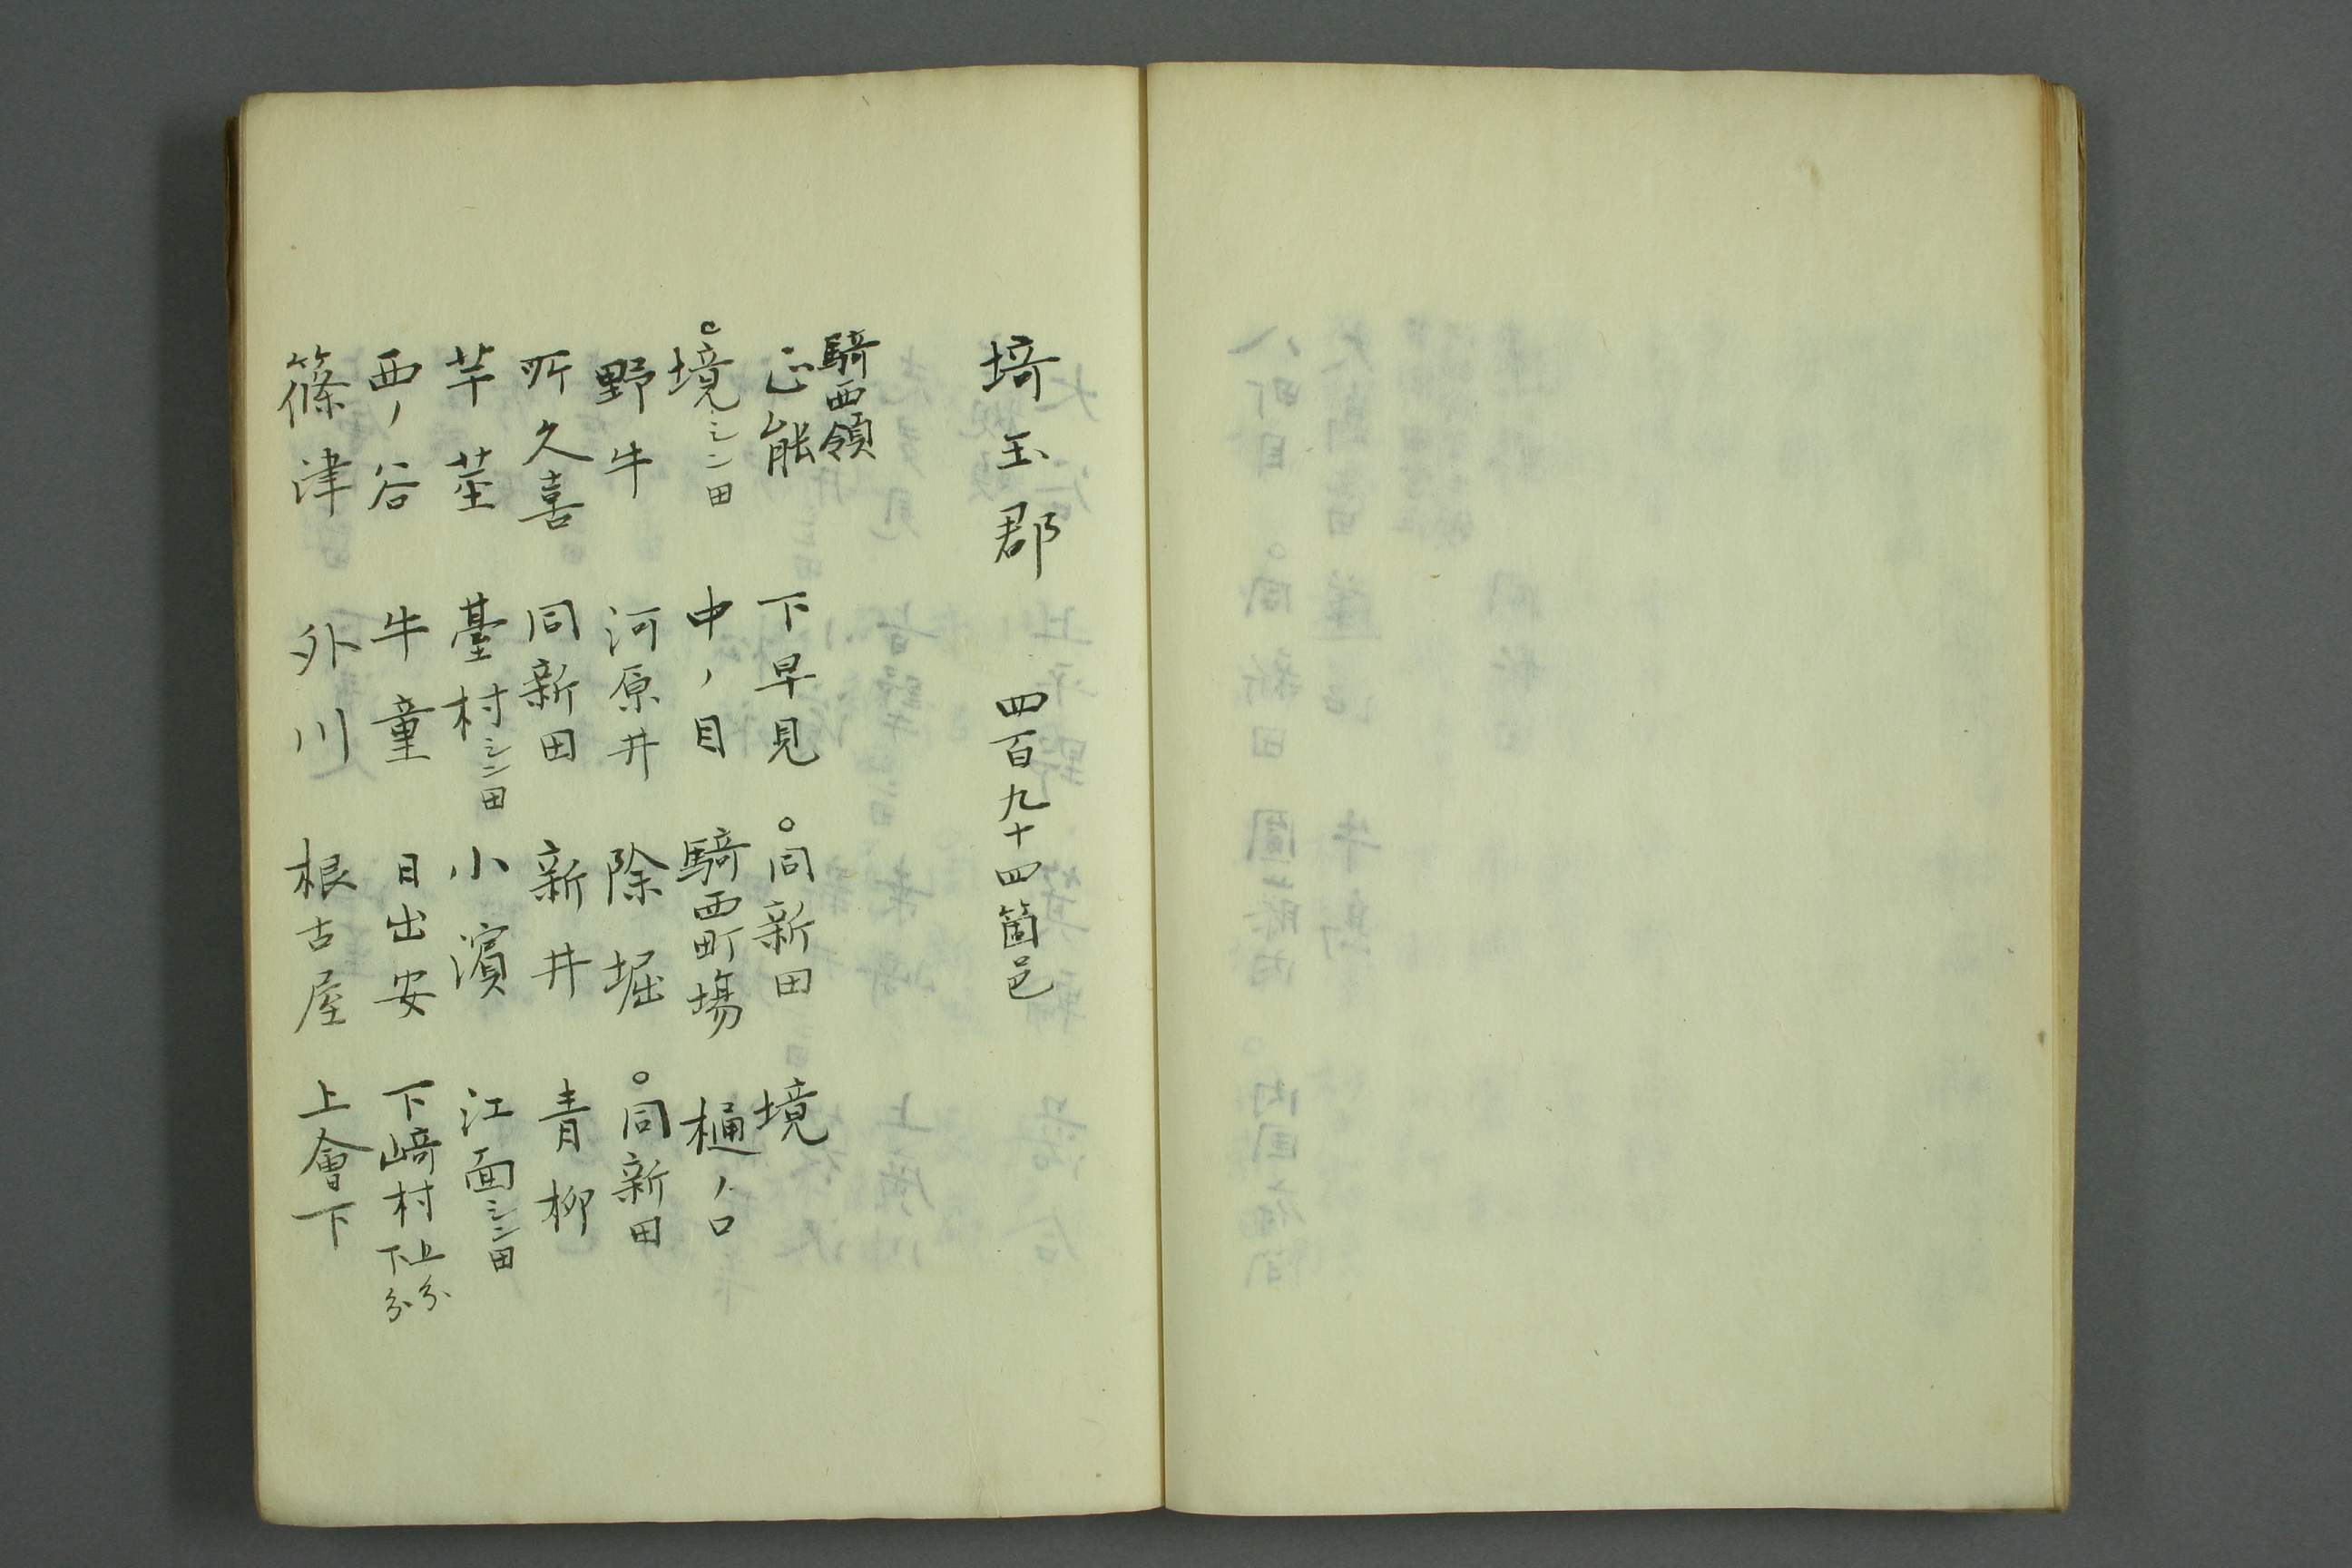 埼玉郡　四百九十四箇邑
騎西領
正能　下早見　○同新田　境
○境シン田　中ノ目　騎西町場　樋ノ口
野牛　河原井　除堀　○同新田
所久喜　同新田　新井　青柳
芋茎　臺村シン田　小濱　江面シン田
西ノ谷　牛重　日出安　下﨑村上分下分
篠津　外川　根古屋　上會下